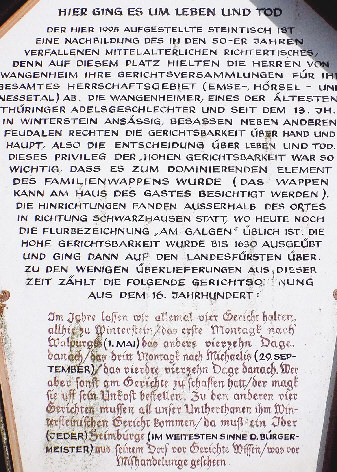 HIER GING ES UM LEBEN UND TOD
DER HIER 1995 AUFGESTELLTE STEINTISCH IST
EINE NACHBILDUNG DES IN DEN 50-ER JAHREN
VERFALLENEN MITTELALTERLICHEN RICHTERTISCHES,
DENN AUF DIESEM PLATZ HIELTEN DIE HERREN VON
WANGENHEIM IHRE GERICHTSVERSAMMLUNGEN FÜR IHR
GESAMTES HERRSCHAFTSGEBIET (EMSE-, HÖRSEL- UND
NESSETAL) AB. DIE WANGENHEIMER, EINES DER ÄLTESTEN
THÜRINGER ADELSGESCHLECHTER UND SEIT DEM 13. JH.
IN WINTERSTEIN ANSÄSSIG, BESASSEN NEBEN ANDEREN
FEUDALEN RECHTEN DIE GERICHTSBARKEIT ÜBER HAND UND
HAUPT, ALSO DIE ENTSCHEIDUNG ÜBER LEBEN UND TOD.
DIESES PRIVILEG DER „HOHEN GERICHTSBARKEIT WAR SO
WICHTIG, DASS ES ZUM DOMINIERENDEN ELEMENT
DES FAMILIENWAPPENS WURDE (DAS WAPPEN
KANN AM HAUS DES GASTES BESICHTIGT WERDEN).
DIE HINRICHTUNGEN FANDEN AUSSERHALB DES ORTES
IN RICHTUNG SCHWARZHAUSEN STATT, WO HEUTE NOCH
DIE FLURBEZEICHNUNG „AM GALGEN" ÜBLICH IST. DIE
HOHE GERICHTSBARKEIT WURDE BIS 1630 AUSGEÜBT
UND GING DANN AUF DEN LANDESFÜRSTEN ÜBER.
ZU DEN WENIGEN ÜBERLIEFERUNGEN AUS DIESER
ZEIT ZÄHLT DIE FOLGENDE GERICHTSORDNUNG
AUS DEM 16. JAHRHUNDERT:
Im Jahre lassen wir allemal vier Gericht halten,
allhie zu Winterstein/das erste Montagk nach
Walburgis (1. MAI) das anders vierzehn Dage
danach/das dritt Montagk nach Michaelis (29. SEP-
TEMBER)/das vierdte vierzehn Dage danach. Wer
aber sonst am Gerichte zu schaffen hatt/der magk
sie uff sein Unkost bestellen. Zu den anderen vier
Gerichten mussen all unser Untherthanen ihm Win-
tersteinischen Gericht kommen/da muß ein Iber
(JEDER) Heimburge (IM WEITESTEN SINNE D. BÜRGER-
MEISTER) aus seinem Dorf vor Gericht Wissen/was vor
Mishandelunge geschen.